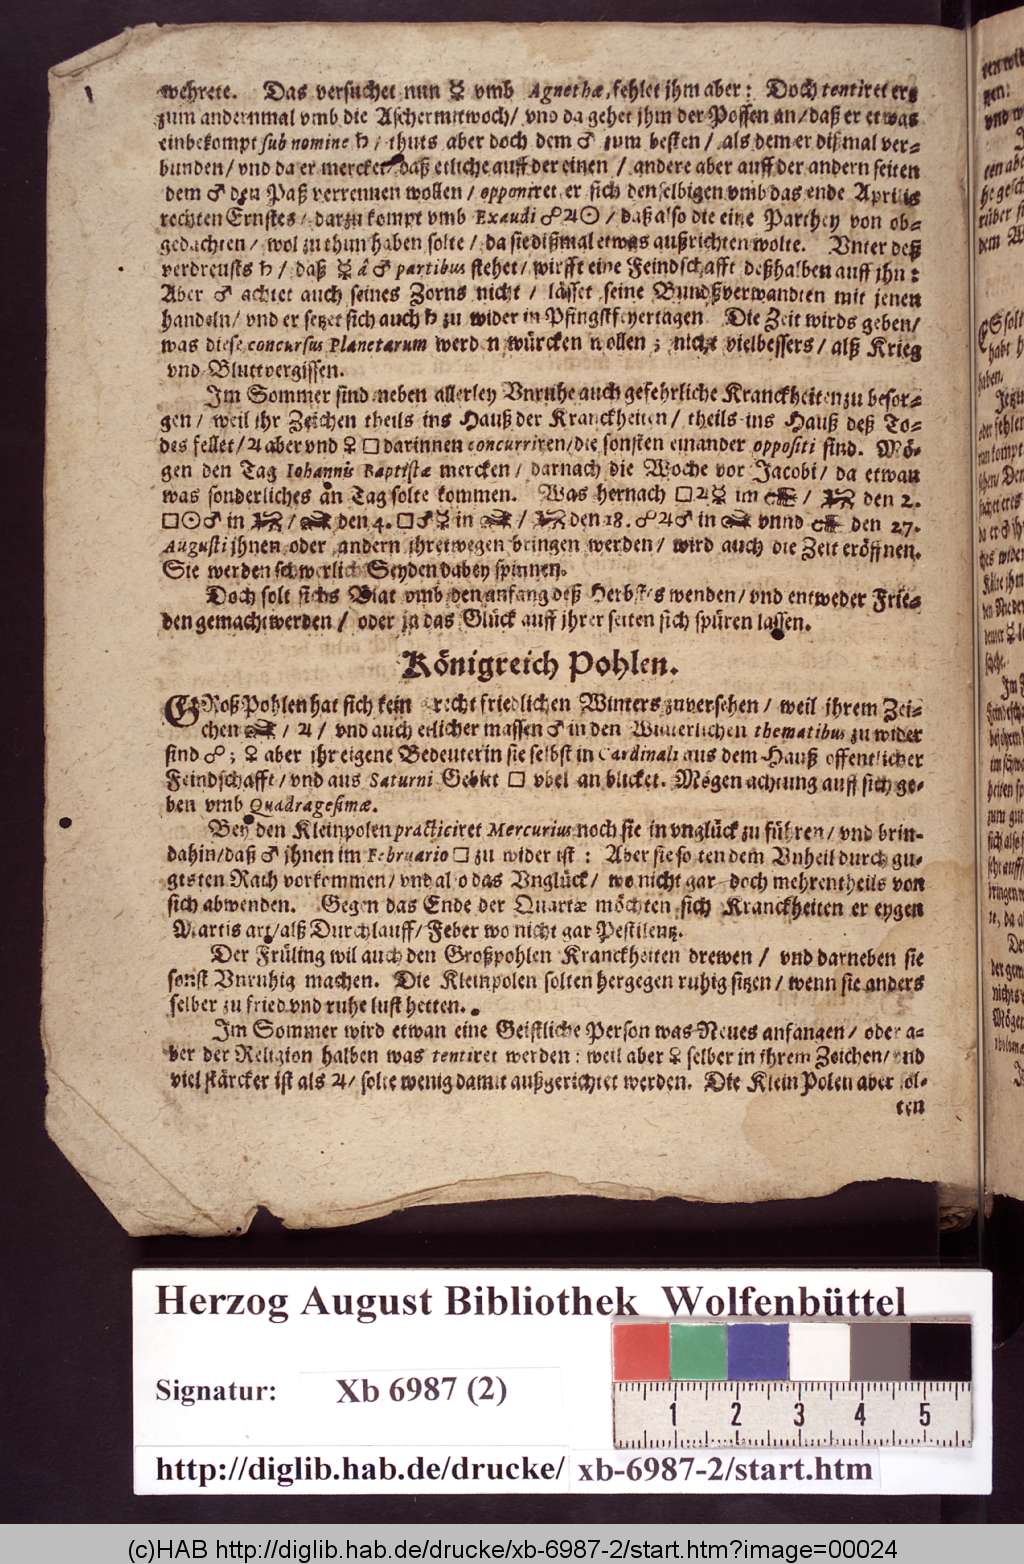 wehrete. Das versuchet nun ☿ vmb Agnethæ, fehlet jhm aber: Doch tentiret er;
zum andernmal vmb die Aschermittwoch/ vnd da gehet jhm der Possen an/ daß er etwas
einbekompt sub nomine ♄, thuts aber doch dem ♂ zum besten/ als dem er dißmal ver⸗
bunden/ vnd da er mercket daß etliche auff der einen/ andere aber auff der andern seiten
dem ♂ den Paß verrennen wollen/ opponiret er sich denselbigen vmb das ende Aprilis
rechten Ernstes/ darzu kompt vmb Exaudi ☍♃☉/ daß also die eine Parthey von ob⸗
gedachten/ wol zu thun haben solte/ da sie dißmal etwas außrichten wolte. Vnter deß
verdreusts ♄/ daß ☿ â ♂ partibus stehet/ wirfft eine Feindschafft deßhalben auff jhn:
Aber ♂ achtet auch seines Zorns nicht/ lässet seine Bundßverwandten mit jenen
handeln/ vnd er setzet sich auch ♄ zu wider in Pfingstfeyertagen Die Zeit wirds geben/
was diese concursus Planetarum werden würcken wollen; nicht viel bessers/ alß Krieg
vnd Bluttvergissen.
Im Sommer sind neben allerley Vnruhe auch gefehrliche Kranckheiten zu besor⸗
gen/ weil ihr Zeichen theils ins Hauß der Kranckheiten/ theils ins Hauß deß To⸗
des fellet/ ♃ aber vnd ♀ □ darinnen concurriren/ die sonsten einander oppositi sind. Mö⸗
gen den Tag Iohannis Baptistæ mercken/ darnach die Woche vor Jacobi/ da etwan
was sonderliches an Tag solte kommen. Was hernach □♃☿ im ♋/ ♌ den 2.
□☉♂ in ♌/ ♏ den 4. □♂☿ in ♏/ ♌ den 18. ☍♃♂ in ♏ vnnd ♋ den 27.
Augusti jhnen oder andern jhretwegen bringen werden/ wird auch die Zeit eröffnen.
Sie werden schwerlich Seyden dabey spinnen.
Doch solt sichs Blat vmb den anfang deß Herbstes wenden/ vnd entweder Frie⸗
den gemacht werden/ oder ja das Glück auff jhrer seiten sich spüren lassen.
Königreich Pohlen.
GRoß Pohlen hat sich kein recht friedlichen Winters zuversehen/ weil ihrem Zei⸗
chen / ♃/ vnd auch etlicher massen ♂ in den Winterlichen thematibus zu wider
sind ☍; ♀ aber ihr eigene Bedeuterin sie selbst in Cardinali aus dem Hauß offentlicher
Feindschafft/ vnd aus Saturni Gebiet □ vbel anblicket. Mögen achtung auff sich ge⸗
ben vmb Quadragesimæ.
Bey den Kleinpolen practiciret Mercurius noch sie in vnglück zu führen/ vnd brin⸗
dahin/ daß ♂ jhnen im Februario □ zu wider ist: Aber sie solten dem Vnheil durch gu⸗
gtsten Rath vorkommen/ vnd also das Vnglück/ wo nicht gar doch mehrentheils von
sich abwenden. Gegen das Ende der Quartæ möchten sich Kranckheiten er eygen
Martis art/ alß Durchlauff/ Feber wo nicht gar Pestilentz.
Der Früling wil auch den Großpohlen Kranckheiten drewen/ vnd darneben sie
sonst Vnruhig machen. Die Kleinpolen solten hergegen ruhig sitzen/ wenn sie anders
selber zu fried vnd ruhe lust hetten.
Im Sommer wird etwan eine Geistliche Person was Neues anfangen/ oder a⸗
ber der Religion halben was tentiret werden: weil aber ♀ selber in ihrem Zeichen/ vnd
viel stärcker ist als ♃/ solte wenig damit außgerichtet werden. Die Klein Polen aber sol⸗
ten
Herzog August Bibliothek Wolfenbüttel
Signatur: Xb 6987 (2)
1 2 3 4 5
http://diglib.hab.de/drucke/ xb-6987-2/start.htm
(c)HAB http://diglib.hab.de/drucke/xb-6987-2/start.htm?image=00024